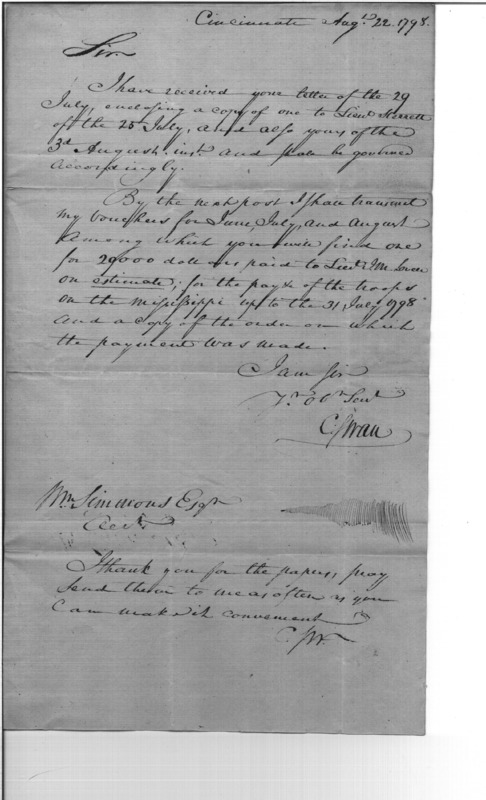 Cincinnati Augt. 22. 1798.
Sir.
I have received your letter of the 29
July, enclosing a copy of one to Lieut Sterrett
of the 25 July, and also yours of the
3d August inst. and shall be governed
accordingly.
By the next post I shall transmit
my vouchers for June, July, and August
Among which you will find one
for 29000 dollars paid to Lieut
on estimate; for the pay &c of the troops
on the Missisippi up to the 31 July 1798
And a copy of the order on which
the payment was made.
I am Sir
Yr. Obt. Servt
C Swan
Wm Simmons Esqr
Acct.
I thank you for the papers, pray
send them to me as often as you
can make it convenient
C. Sw.